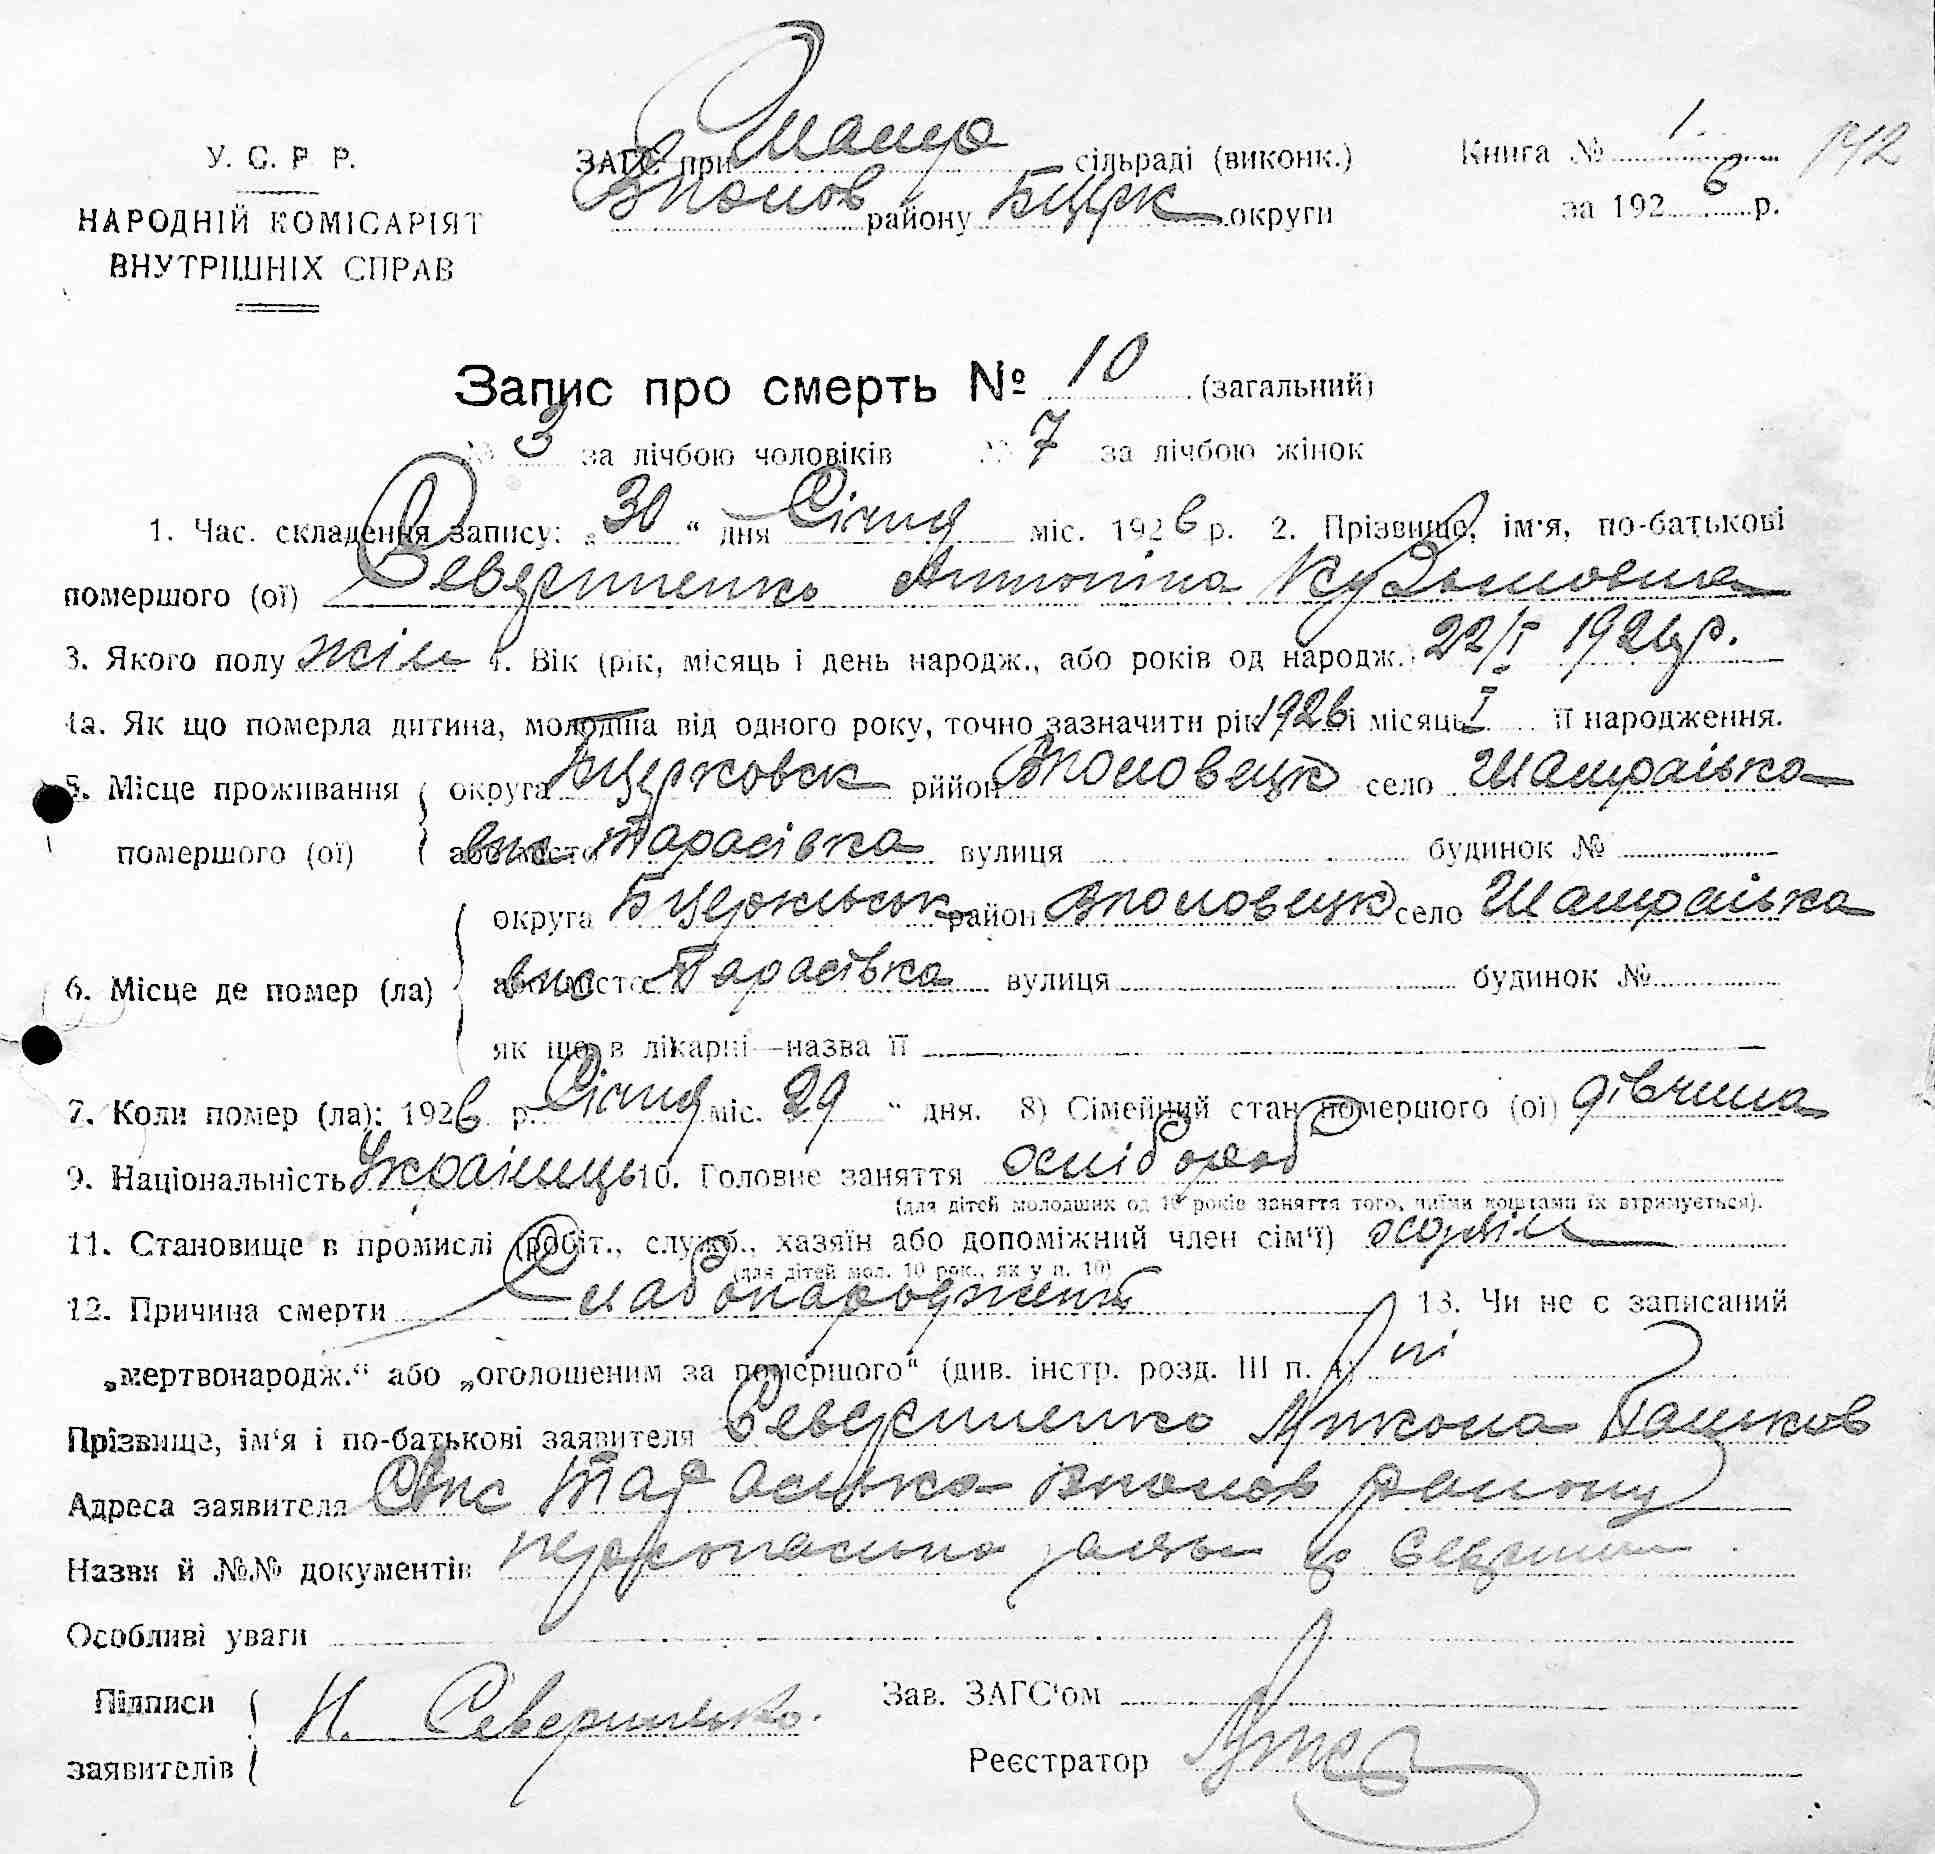 У. С. Р. Р.
НАРОДНІЙ КОМІСАРІЯТ
ВНУТРІШНІХ СПРАВ
ЗАГС при сільраді (виконк.)
району БЦерк округи
Книга № 1. 142
за 1926 р.
Запис про смерть № 10 (загальний)
№ 3 за лічбою чоловіків № 7 за лічбою жінок
1. Час. складення запису: „30“ дня Січня міс. 1926 р. 2. Прізвище, ім'я, по-батькові
помершого (ої) Севериненко Антоніна
3. Якого полу жін 4. Вік (рік, місяць і день народж., або років од народж.) 22/I 1926 р.
4а. Як що померла дитина, молодша від одного року, точно зазначити рік 1926 і місяць I її народження.
5. Місце проживання помершого (ої) округа БЦерковск рййон село
або місто Тарасівка вулиця будинок №
6. Місце де помер (ла) округа район село
або місто Тарасівка вулиця будинок №
як що в лікарні—назва її
7. Коли помер (ла): 1926 р. Січня міс. 29 “ дня. 8) Сімейний стан помершого (ої) дівчина
9. Національність Українець 10. Головне заняття хлібороб
(для дітей молодших од 10 років заняття того, чиїми коштами їх втримується).
11. Становище в промислі (робіт., служб., хазяїн або допоміжний член сім'ї)
(для дітей мол. 10 рок., як у п. 10)
12. Причина смерти Слабонароджена 13. Чи не є записаний
„мертвонародж.“ або „оголошеним за помершого“ (див. інстр. розд. III п. 4) ні
Прізвище, ім'я і по-батькові заявителя Севериненко
Адреса заявителя району
Назви й №№ документів
Особливі уваги
Підписи заявителів Н. Севериненко. Зав. ЗАГС'ом
Реєстратор